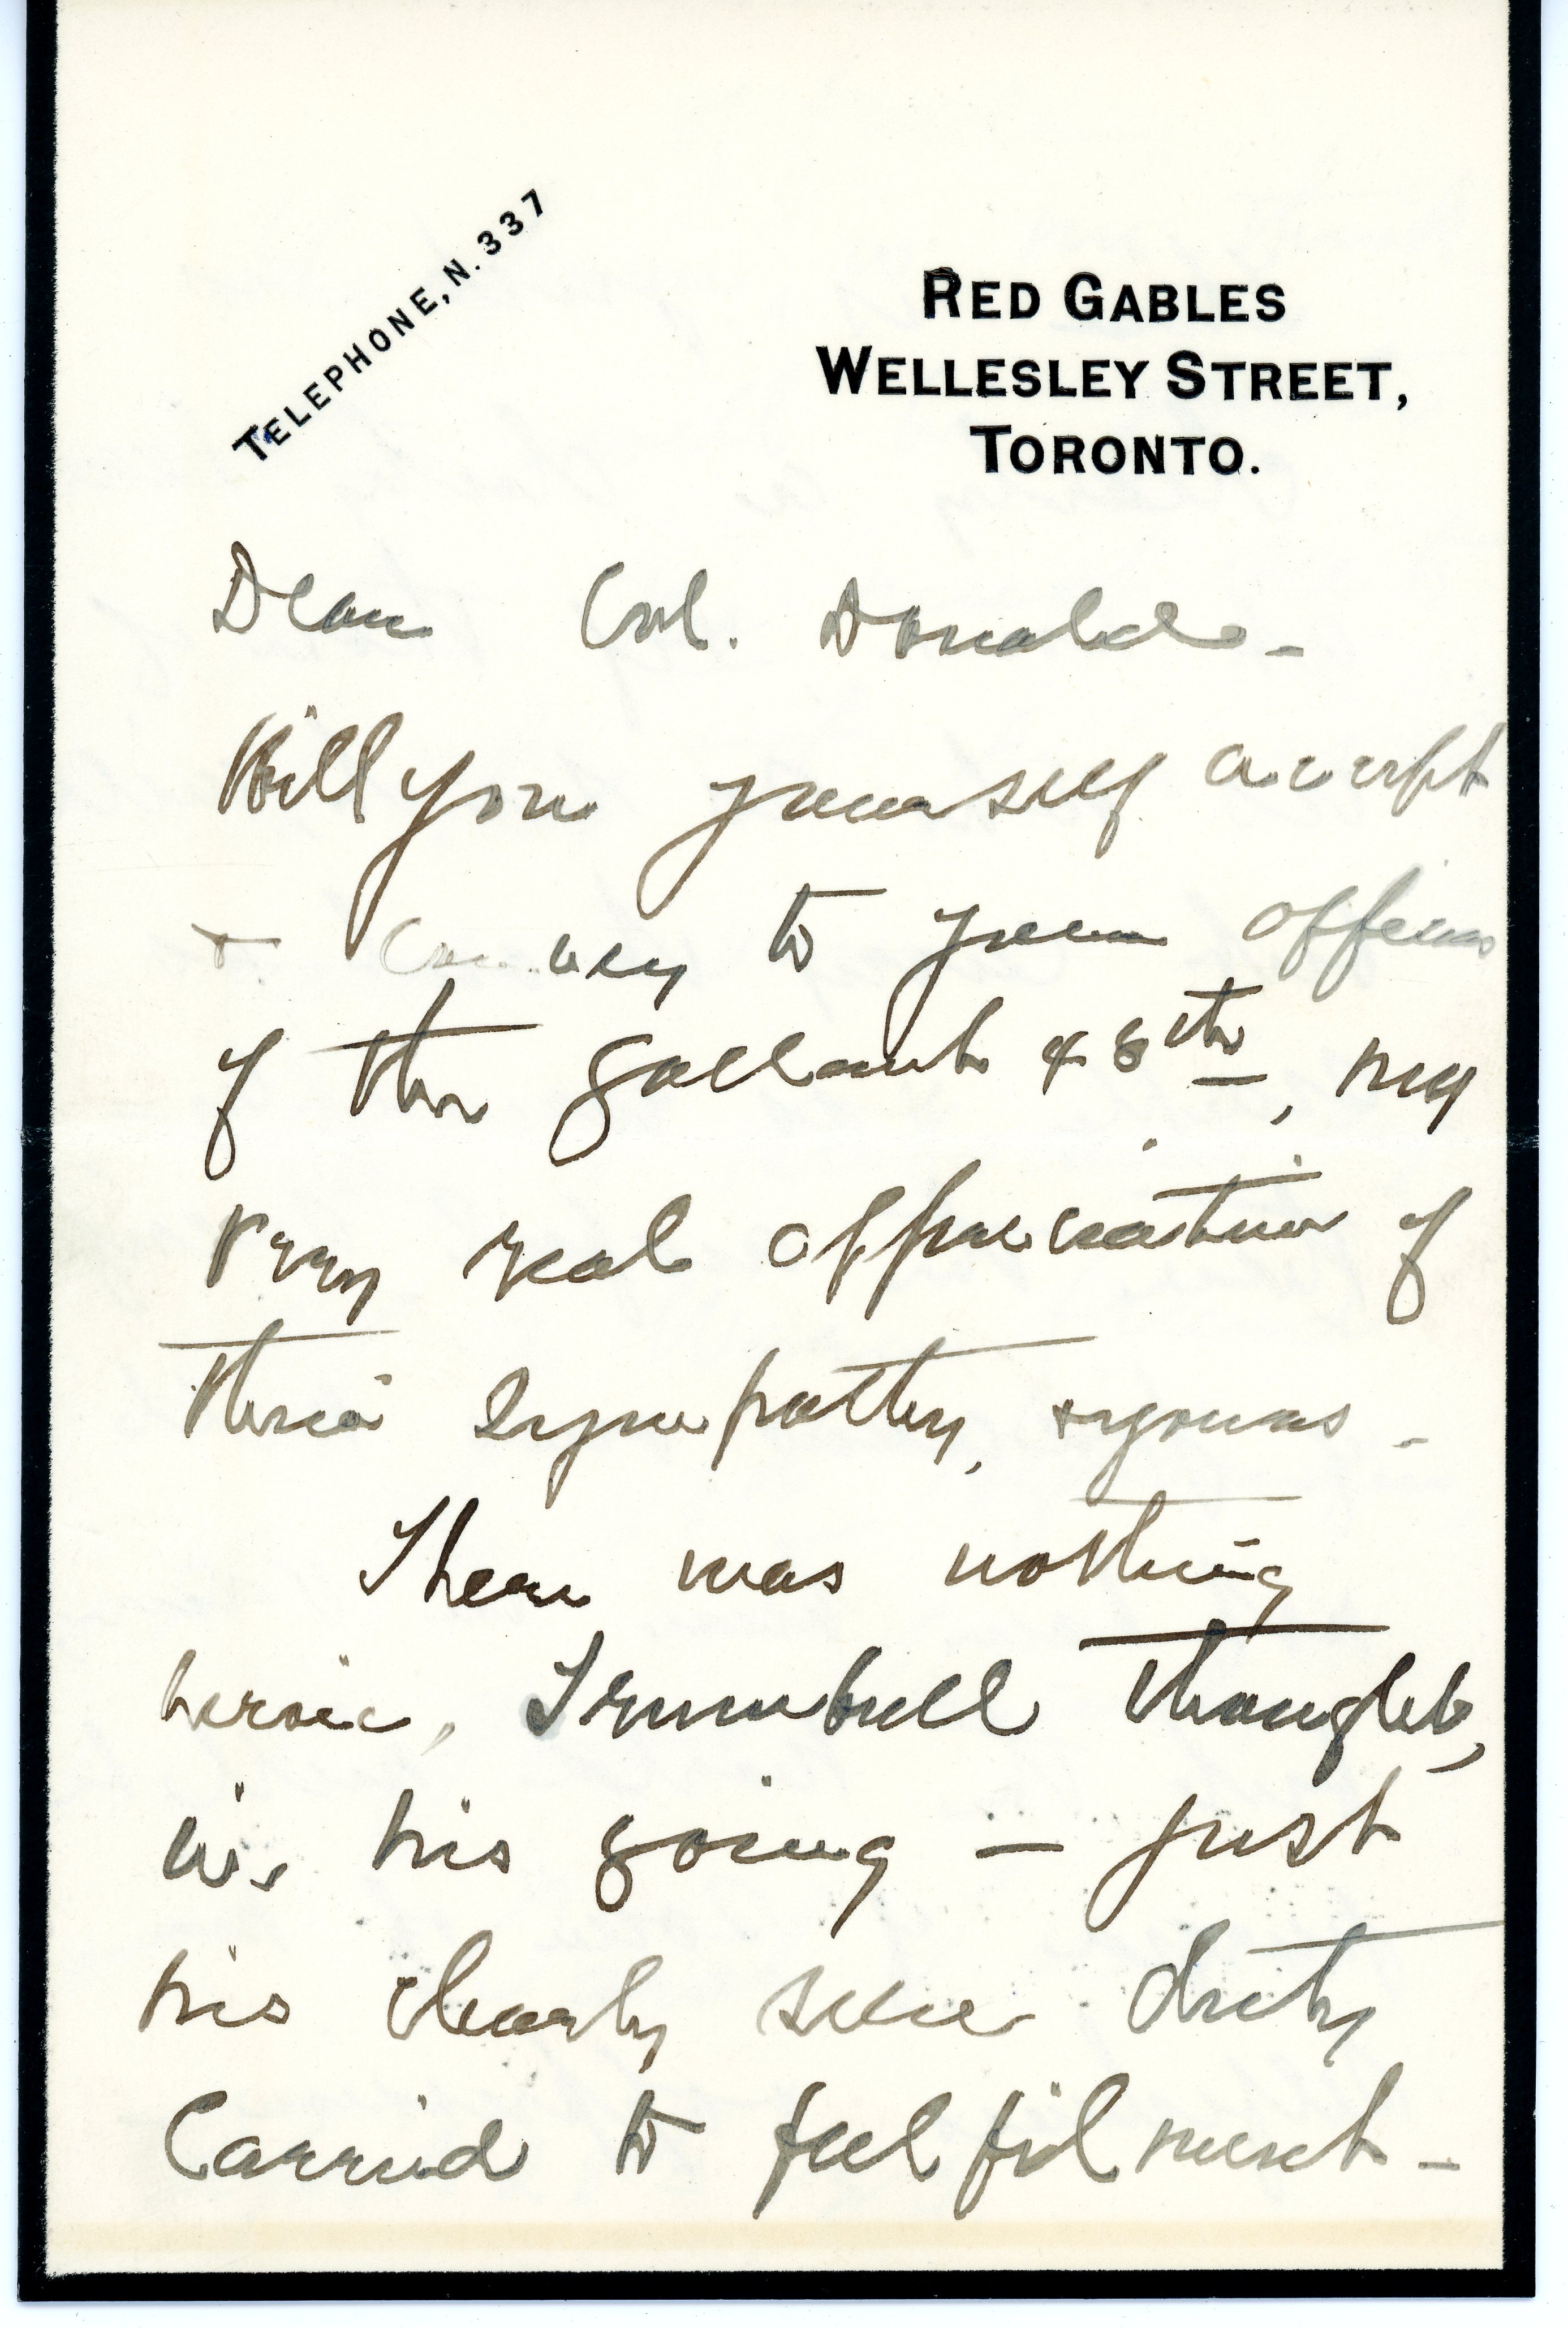 TELEPHONE, N. 337
RED GABLES
WELLESLEY STREET,
TORONTO.
Dear Col. Donald -
Will you yourself accept
& convey to your officers
of the gallant 48th, my
very real appreciation of
their sympathy, & yours -
There was nothing
heroic, Trumbull thought,
in his going - just
his clearly seen duty
carried to fulfilment -